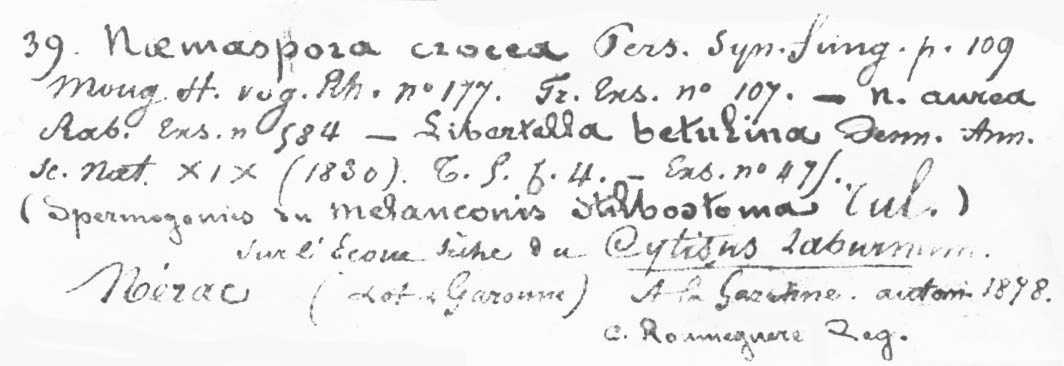 39. Naemaspora crocea Pers. Syn. fung. p. 109
Moug. St. vog. Rh. no 177. Fr. Exs. no 107. — N. aurea
Rab. Exs. n 584 — Libertella betulina Desm. Ann.
Sc. Nat. XIX (1830). T. 5. f. 4. — Exs. no 475.
(Spermogonies du Melanconis stilbostoma Tul.)
Sur l'Ecorce sèche du Cytisus Laburnum.
Nérac (Lot & Garonne) A la Garenne. autom. 1878.
C. Roumeguere Leg.